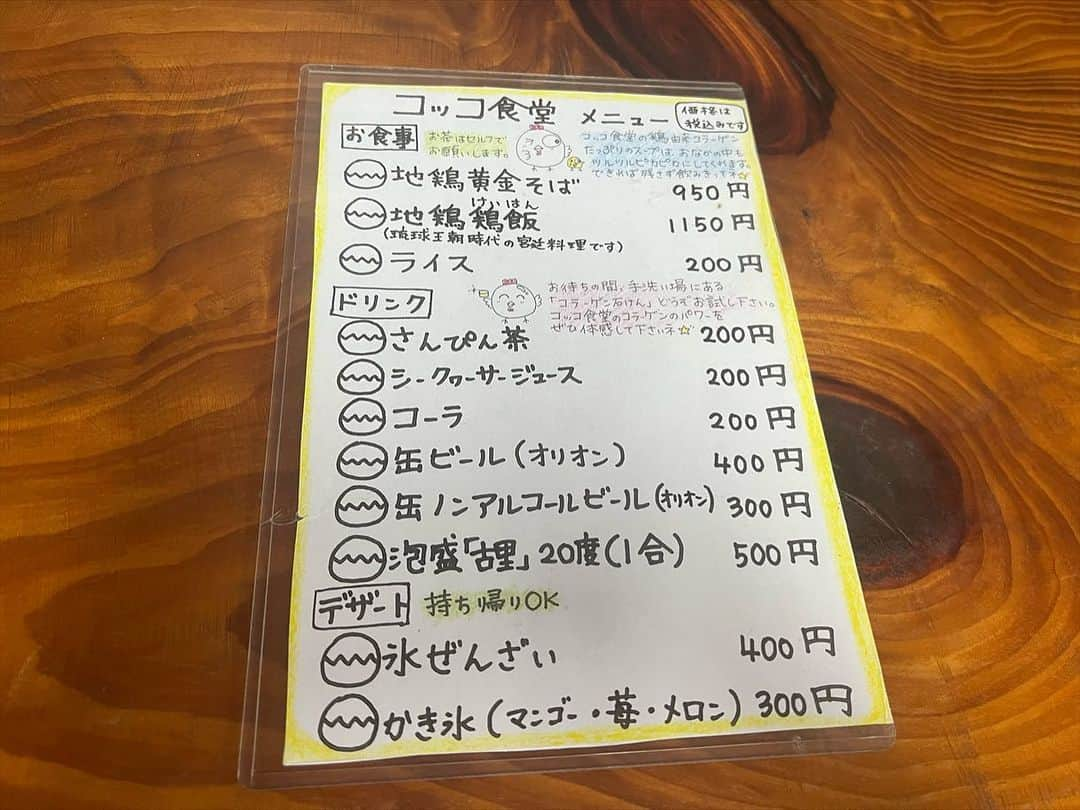 コッコ食堂 メニュー
価格は
税込みです
お食事
お茶はセルフで
お願いします。
コッコ食堂の鶏由来コラーゲン
たっぷりのスープは、おなかの中も
ツルツルピカピカにしてくれます。
できれば残さず飲みきってネ☆
地鶏黄金そば 950円
けいはん
地鶏鶏飯 1150円
(琉球王朝時代の宮廷料理です)
ライス 200円
ドリンク
お待ちの間、手洗い場にある
「コラーゲン石けん」どうぞお試し下さい。
コッコ食堂のコラーゲンのパワーを
ぜひ体感して下さいネ☆
さんぴん茶 200円
シークヮーサージュース 200円
コーラ 200円
缶ビール(オリオン) 400円
缶ノンアルコールビール(オリオン) 300円
泡盛「古里」20度(1合) 500円
デザート 持ち帰りOK
氷ぜんざい 400円
かき氷(マンゴー・苺・メロン) 300円